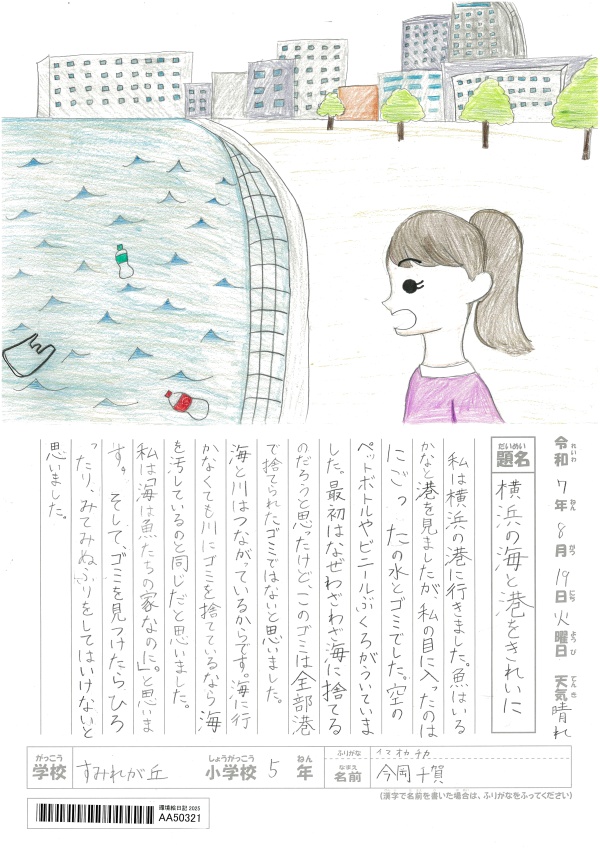 令和7年8月19日火曜日 天気晴れ
題名 横浜の海と港をきれいに
私は横浜の港に行きました。魚はいる
かなと港を見ましたが、私の目に入ったのは
にごった水とゴミでした。空の
ペットボトルやビニールぶくろがういていま
した。最初はなぜわざわざ海に捨てる
のだろうと思ったけど、このゴミは全部港
で捨てられたゴミではないと思いました。
海と川はつながっているからです。海に行
かなくても川にゴミを捨てているなら海
を汚しているのと同じだと思いました。
私は「海は魚たちの家なのに。」と思いま
す。そして、ゴミを見つけたらひろ
ったり、みてみぬふりをしてはいけないと
思いました。
がっこう しょうがっこう ねん ふりがな イマオカ チカ
学校 すみれが丘 小学校 5年 なまえ 名前 今岡 千賀
(漢字で名前を書いた場合は、ふりがなをふってください)
環境絵日記 2025
AA50321